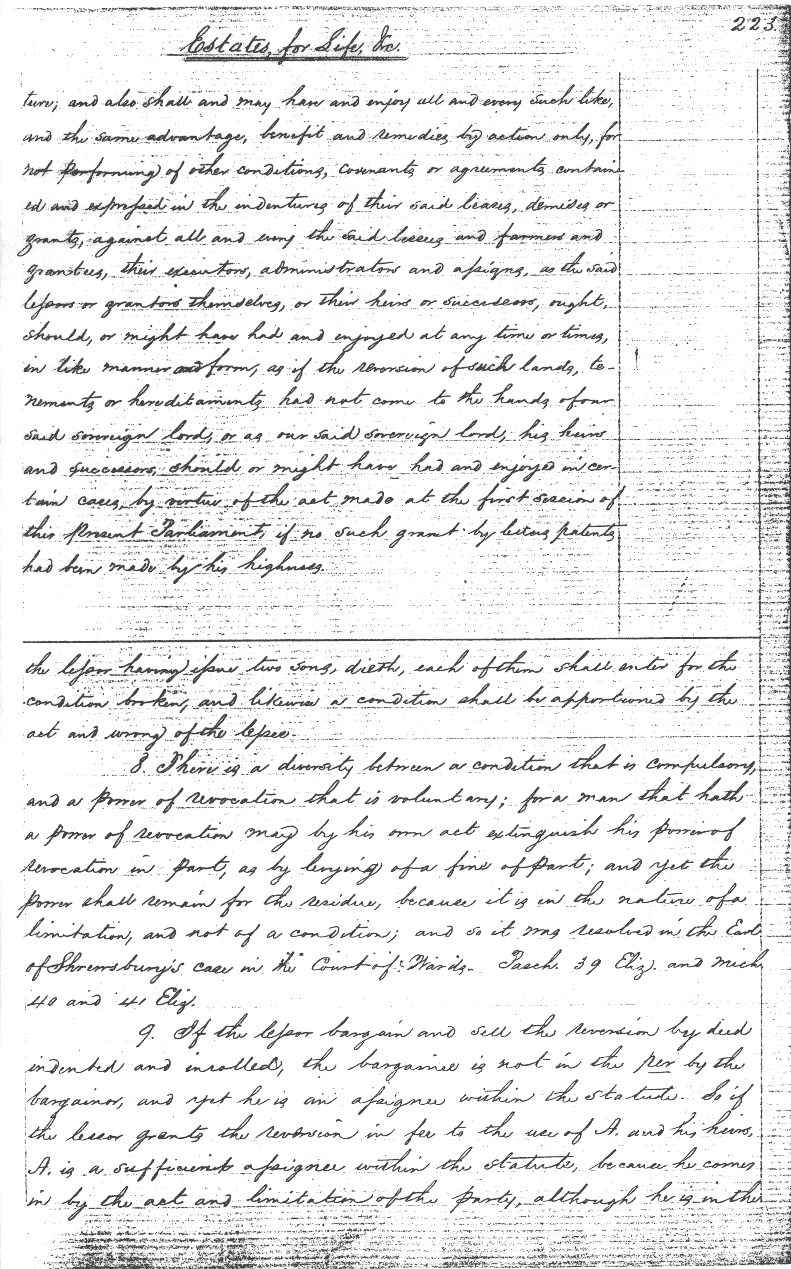 223.
Estates, for Life, &c.
ture; and also shall and may have and enjoy all and every such like,
and the same advantage, benefit and remedies by action only, for
not performing of other conditions, covenants or agreements contain-
ed and expressed in the indentures of their said leases, demises or
grants, against all and every the said lessees and farmers and
grantees, their executors, administrators and assigns, as the said
lessors or grantors themselves, or their heirs or successors, ought,
should, or might have had and enjoyed at any time or times,
in like manner and form, as if the reversion of such lands, te-
nements or hereditaments had not come to the hands of our
said sovereign lord, or as our said sovereign lord, his heirs
and successors, should or might have had and enjoyed in cer-
tain cases, by virtue of the act made at the first session of
this present Parliament, if no such grant by letters patents
had been made by his highness.
the lessor having issue two sons, dieth, each of them shall enter for the
condition broken, and likewise a condition shall be apportioned by the
act and wrong of the lessee.
8. There is a diversity between a condition that is compulsory,
and a power of revocation that is voluntary; for a man that hath
a power of revocation may by his own act extinguish his power of
revocation in part, as by levying of a fine of part; and yet the
power shall remain for the residue, because it is in the nature of a
limitation, and not of a condition; and so it was resolved in the Earl
of Shrewsbury's case in the Court of Wards. Pasch. 39 Eliz. and Mich.
40 and 41 Eliz.
9. If the lessor bargain and sell the reversion by deed
indented and inrolled, the bargainee is not in the per by the
bargainor, and yet he is an assignee within the statute. So if
the lessor grants the reversion in fee to the use of A. and his heirs,
A. is a sufficient assignee within the statute, because he comes
in by the act and limitation of the party, although he is in the